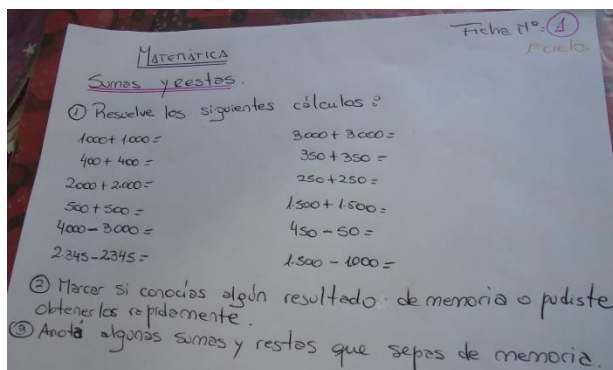 Ficha Nº: 1
MATEMÁTICA
Sumas y restas.
① Resuelve los siguientes cálculos:
1000 + 1.000 =
3.000 + 3.000 =
400 + 400 =
350 + 350 =
2.000 + 2.000 =
250 + 250 =
500 + 500 =
1.500 + 1.500 =
4000 - 3000 =
450 - 50 =
2.345 - 2345 =
1.500 - 1000 =
② Marcar si conocías algún resultado de memoria o pudiste
obtenerlos rapidamente.
③ Anotá algunas sumas y restas que sepas de memoria.